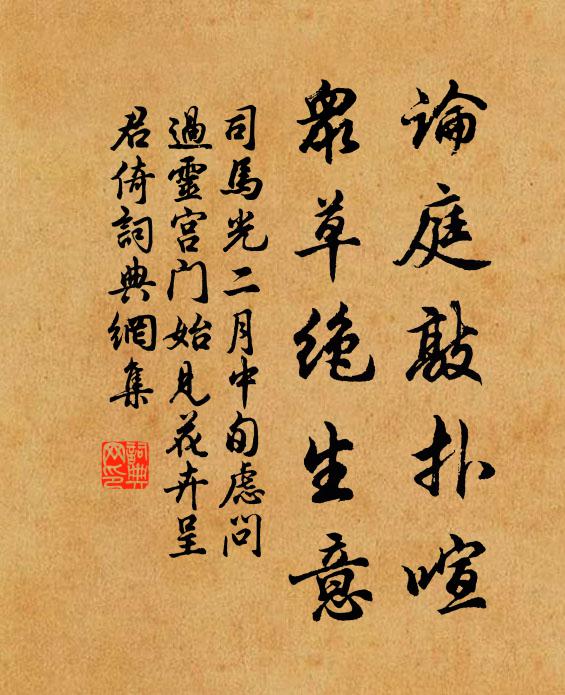 論庭敲扑喧
眾草绝生意
司馬光二月中旬慮問
過靈宮门始見花卉呈
君倚詞典網集
詞典